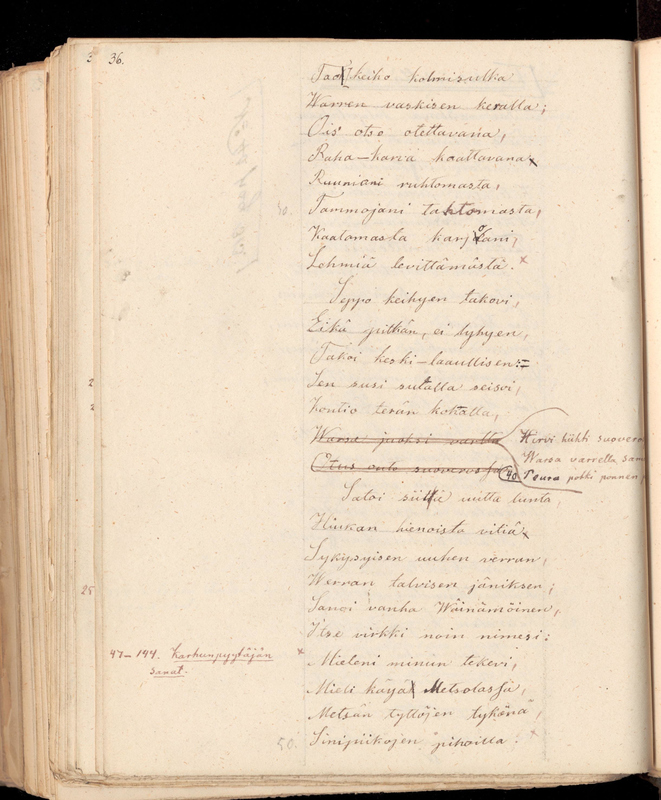 36.
Tao keiho kolmisulka
Warren vaskisen keralla;
Ois' otso otettavana,
Raha-karva kaattavana
Ruuniani ruhtomasta,
30. Tammojani tahtomasta,
Kaatomasta karjoani,
Lehmiä levittämästä.
Seppo keihyen takovi,
Eikä pitkän, ei lyhyen,
Takoi keski-laaullisen:
Sen susi sulalla seisoi,
Kontio terän kohalla,
Hirvi hiihti suoveros
Warsa varrella sam
40 Peura potki ponnen
Satoi siittä uutta lunta,
Hiukan hienoista vitiä
Sykysyisen uuhen verran,
Werran talvisen jäniksen;
Sanoi vanha Wäinämöinen,
Itse virkki noin nimesi:
47-144. Karhunpyytäjän sanat.
Mieleni minun tekevi,
Mieli käyä Metsolassa,
Metsän tyttöjen tykönä,
50. Sinipiikojen pihoilla: